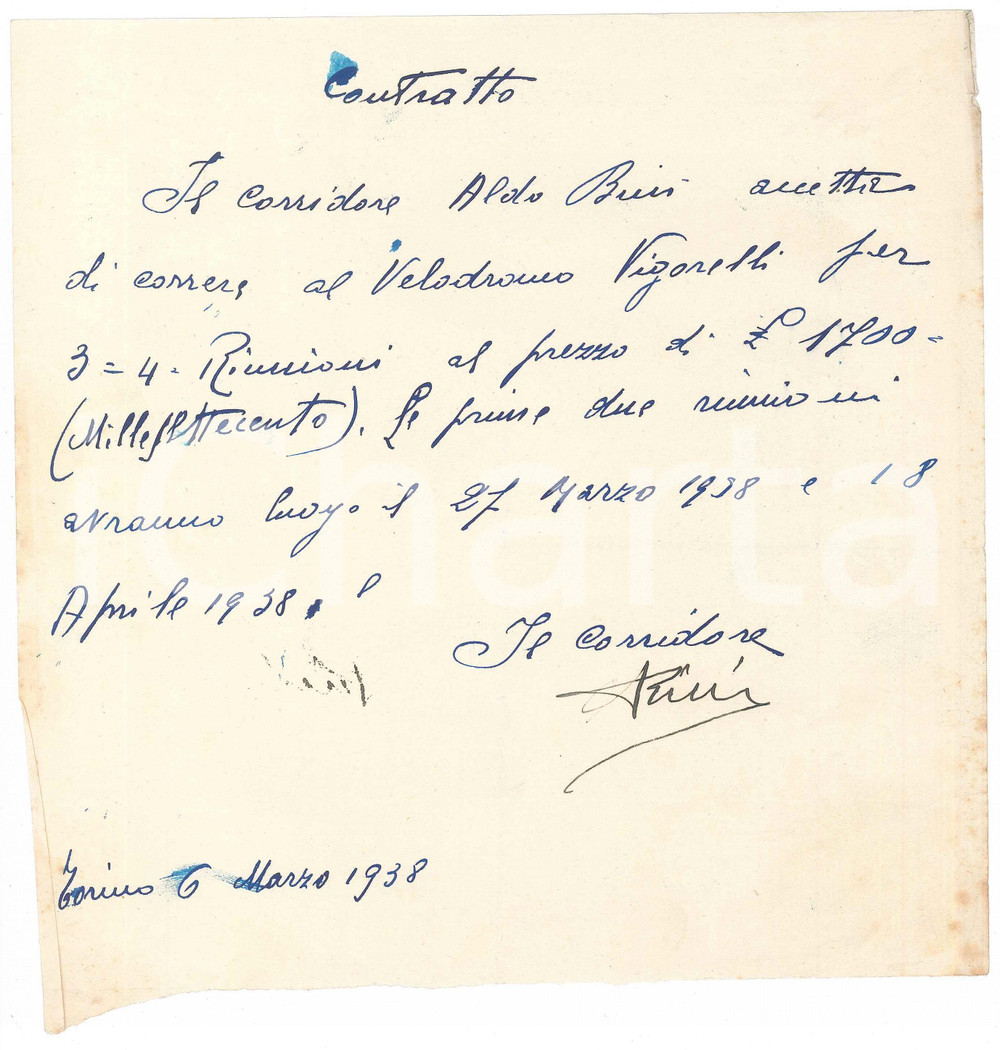 Contratto
Il corridore Aldo Bini accetta
di correre al Velodromo Vigorelli per
3=4= Riunioni al prezzo di £ 1700=
(Millesettecento). Le prime due riunioni
avranno luogo il 27 Marzo 1938 e 18
Aprile 1938.
Il corridore
ABini
Torino 6 Marzo 1938
iCharta